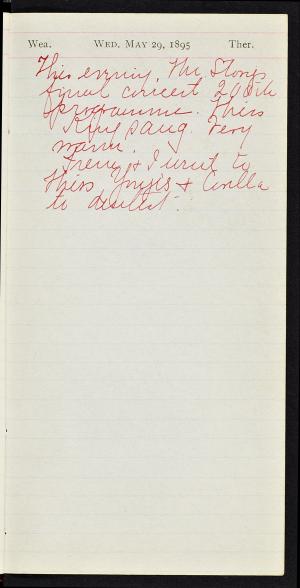 Wea. WED. MAY 29, 1895 Ther.
This evening, Mr. Stong's
final concert 200th
programme. Miss
King sang. Very
warm.
Irene & I went to
Miss & Cirilla
to